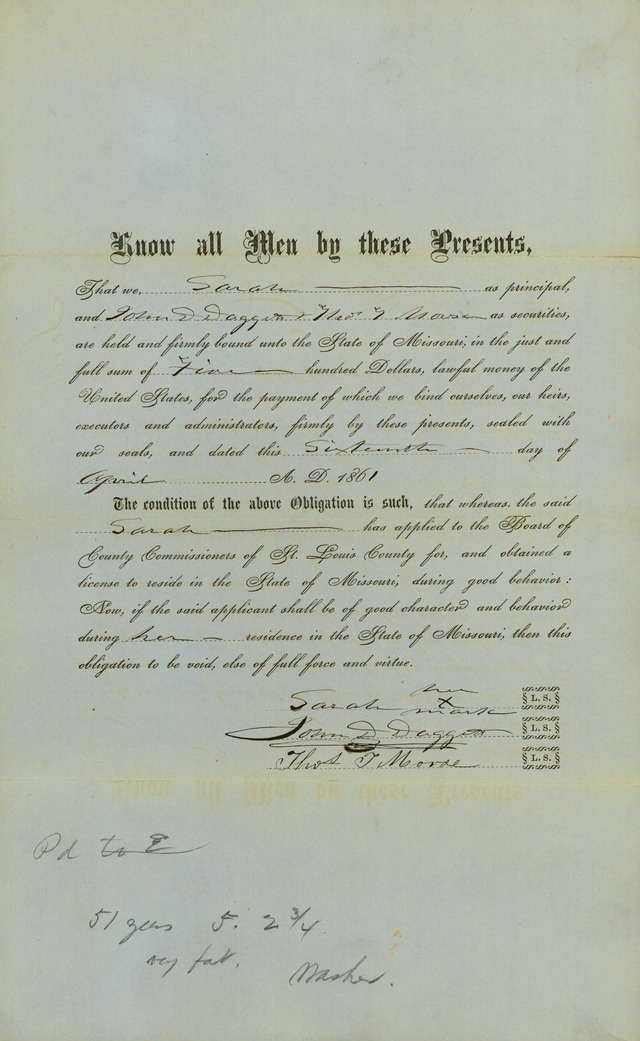 Know all Men by these Presents,
That we, Sarah as principal,
and John D Daggett & Thos T Morse as securities,
are held and firmly bound unto the State of Missouri, in the just and
full sum of Five hundred Dollars, lawful money of the
United States, for the payment of which we bind ourselves, our heirs,
executors and administrators, firmly by these presents, sealed with
our seals, and dated this Sixteenth day of
April A. D. 1861
The condition of the above Obligation is such, that whereas, the said
Sarah has applied to the Board of
County Commissioners of St. Louis County for, and obtained a
license to reside in the State of Missouri, during good behavior:
Now, if the said applicant shall be of good character and behavior
during her residence in the State of Missouri, then this
obligation to be void, else of full force and virtue.
her
Sarah X mark L. S.
John D Daggett L. S.
Thos T Morse L. S.
Pd to E
51 years 5. 2 3/4
very fat.
Washer.